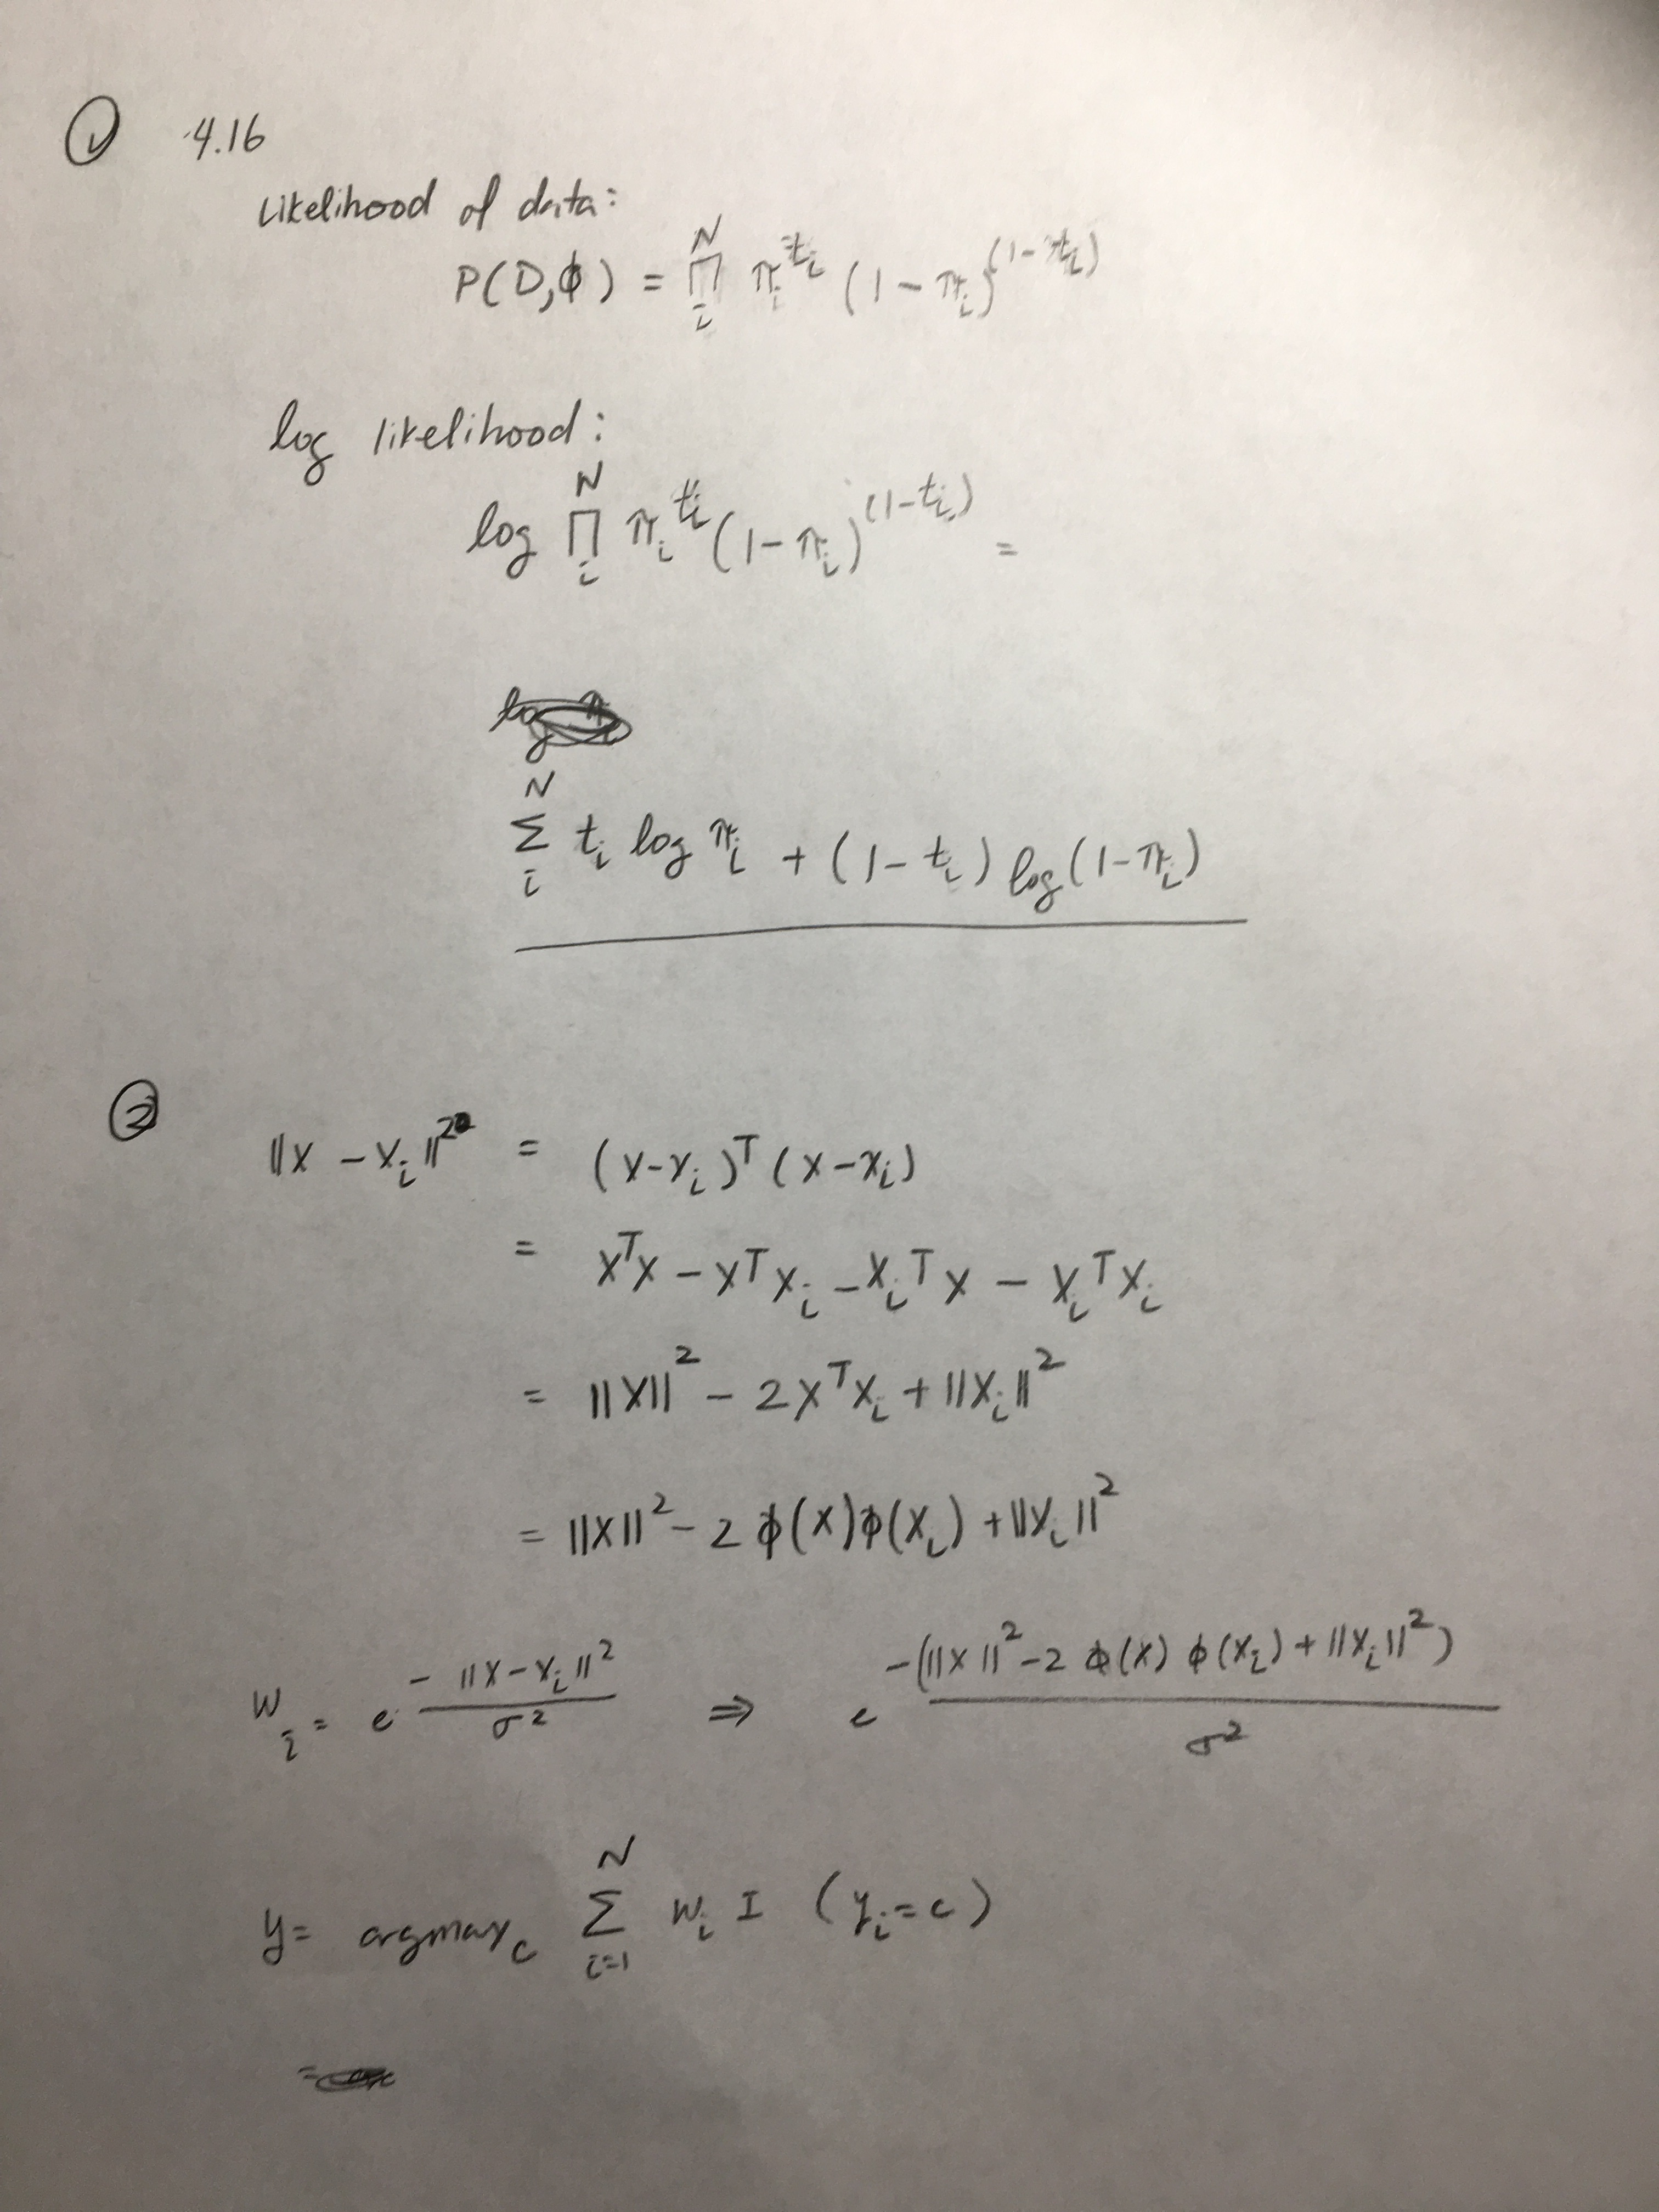 ① 4.16
Likelihood of data:
P(D,ϕ) = ∏_i^N π_i^{t_i} (1 - π_i)^{(1-t_i)}
log likelihood:
log ∏_i^N π_i^{t_i} (1-π_i)^{(1-t_i)} =
∑_i^N t_i log π_i + (1-t_i) log(1-π_i)
② ||x - x_i||^2 = (x-x_i)^T (x-x_i)
= x^Tx - x^Tx_i - x_i^Tx - x_i^Tx_i
= ||x||^2 - 2x^Tx_i + ||x_i||^2
= ||x||^2 - 2ϕ(x)ϕ(x_i) + ||x_i||^2
w_i = e^{-||x-x_i||^2 / σ^2} ⇒ e^{-(||x||^2-2ϕ(x)ϕ(x_i)+||x_i||^2) / σ^2}
y= argmax_c ∑_{i=1}^N w_i I (y_i=c)
=